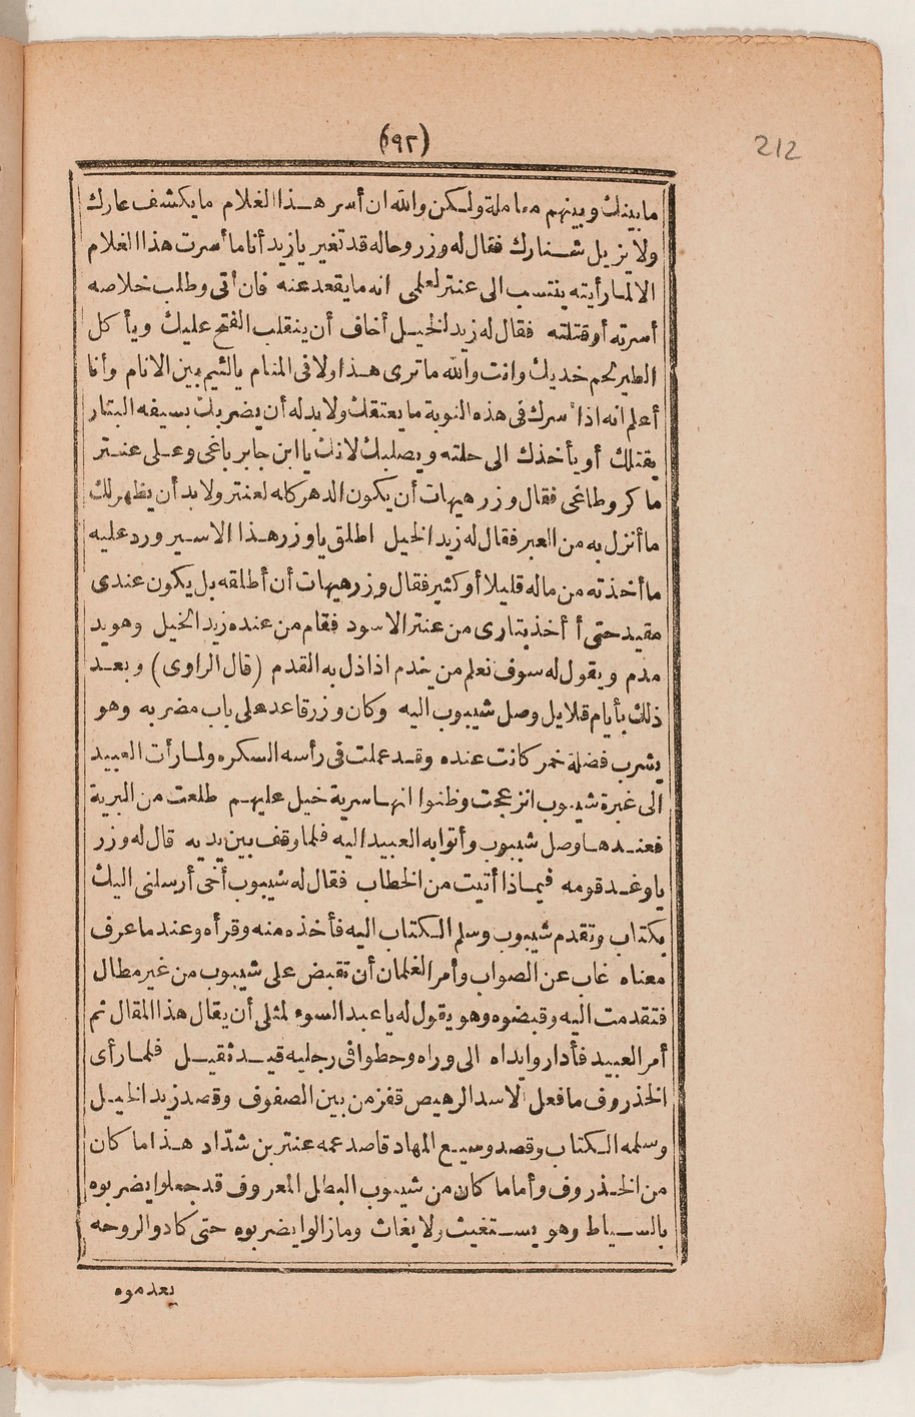 (٩٢)
212
مابينك وبينهم معاملة ولكن والله ان أسر هذا الغلام مايكشف عارك
ولا يزيل شنارك فقال له وزر وحاله قد تغير يازيد أناما أسرت هذا الغلام
الالمارأيته ينتسب الى عنتر لعلمى انه مايقعد عنه فان أتى وطلب خلاصه
أسرته أوقتلته فقال له زيد الخيل أخاف أن ينقلب الفتح عليك ويأكل
الطير لحم خديك وانت والله ماترى هذا ولا فى المنام يالئيم بين الانام وأنا
أعلم انه اذا أسرك فى هذه النوبة مايعتقك ولابد له أن يضربك بسيفه البتار
يقتلك أو يأخذك الى حلته ويصلبك لانك ياابن جابر باغى وعلى عنتر
ماكر وطاغى فقال وزر هيهات أن يكون الدهر كله لعنتر ولا بد أن يظهر لك
ما أنزل به من العبر فقال له زيد الخيل اطلق ياوزر هذا الاسير ورد عليه
ما أخذته من ماله قليلا أوكثير فقال وزر هيهات أن أطلقه بل يكون عندى
مقيد حتى أ أخذ بثارى من عنتر الاسود فقام من عنده زيد الخيل وهو يد
مدم ويقول له سوف نعلم من يندم اذا ذل به القدم (قال الراوى) وبعد
ذلك بأيام قلايل وصل شيبوب اليه وكان وزر قاعد على باب مضربه وهو
يشرب فضلة خمر كانت عنده وقد عملت فى رأسه السكره ولما رأت العبيد
الى غبرة شيبوب انزعجت وظنوا انها سرية خيل عليهم طلعت من البرية
فعندها وصل شيبوب وأتوا به العبيد اليه فلما وقف بين يديه قال له وزر
ياوغد قومه فيماذا أتيت من الخطاب فقال له شيبوب أخى أرسلنى اليك
بكتاب وتقدم شيبوب وسلم الكتاب اليه فأخذه منه وقرأه وعند ماعرف
معناه غاب عن الصواب وأمر الغلمان أن تقبض على شيبوب من غير مطال
فتقدمت اليه وقبضوه وهو يقول له ياعبد السوء لمثلى أن يقال هذا المقال ثم
أمر العبيد فأداروايداه الى وراه وحطوا فى رجليه قيد ثقيل فلما رأى
الخذروف مافعل الاسد الرهيص قفز من بين الصفوف وقصد زيد الخيل
وسلمه الكتاب وقصد وسيع المهاد قاصد عمه عنتر بن شدّاد هذا ما كان
من الخذروف وأماما كان من شيبوب البطل المعروف قد جعلوا يضربوه
بالسياط وهو يستغيث ولا يغاث ومازالوا يضربوه حتى كادوا لروحه
يعدموه